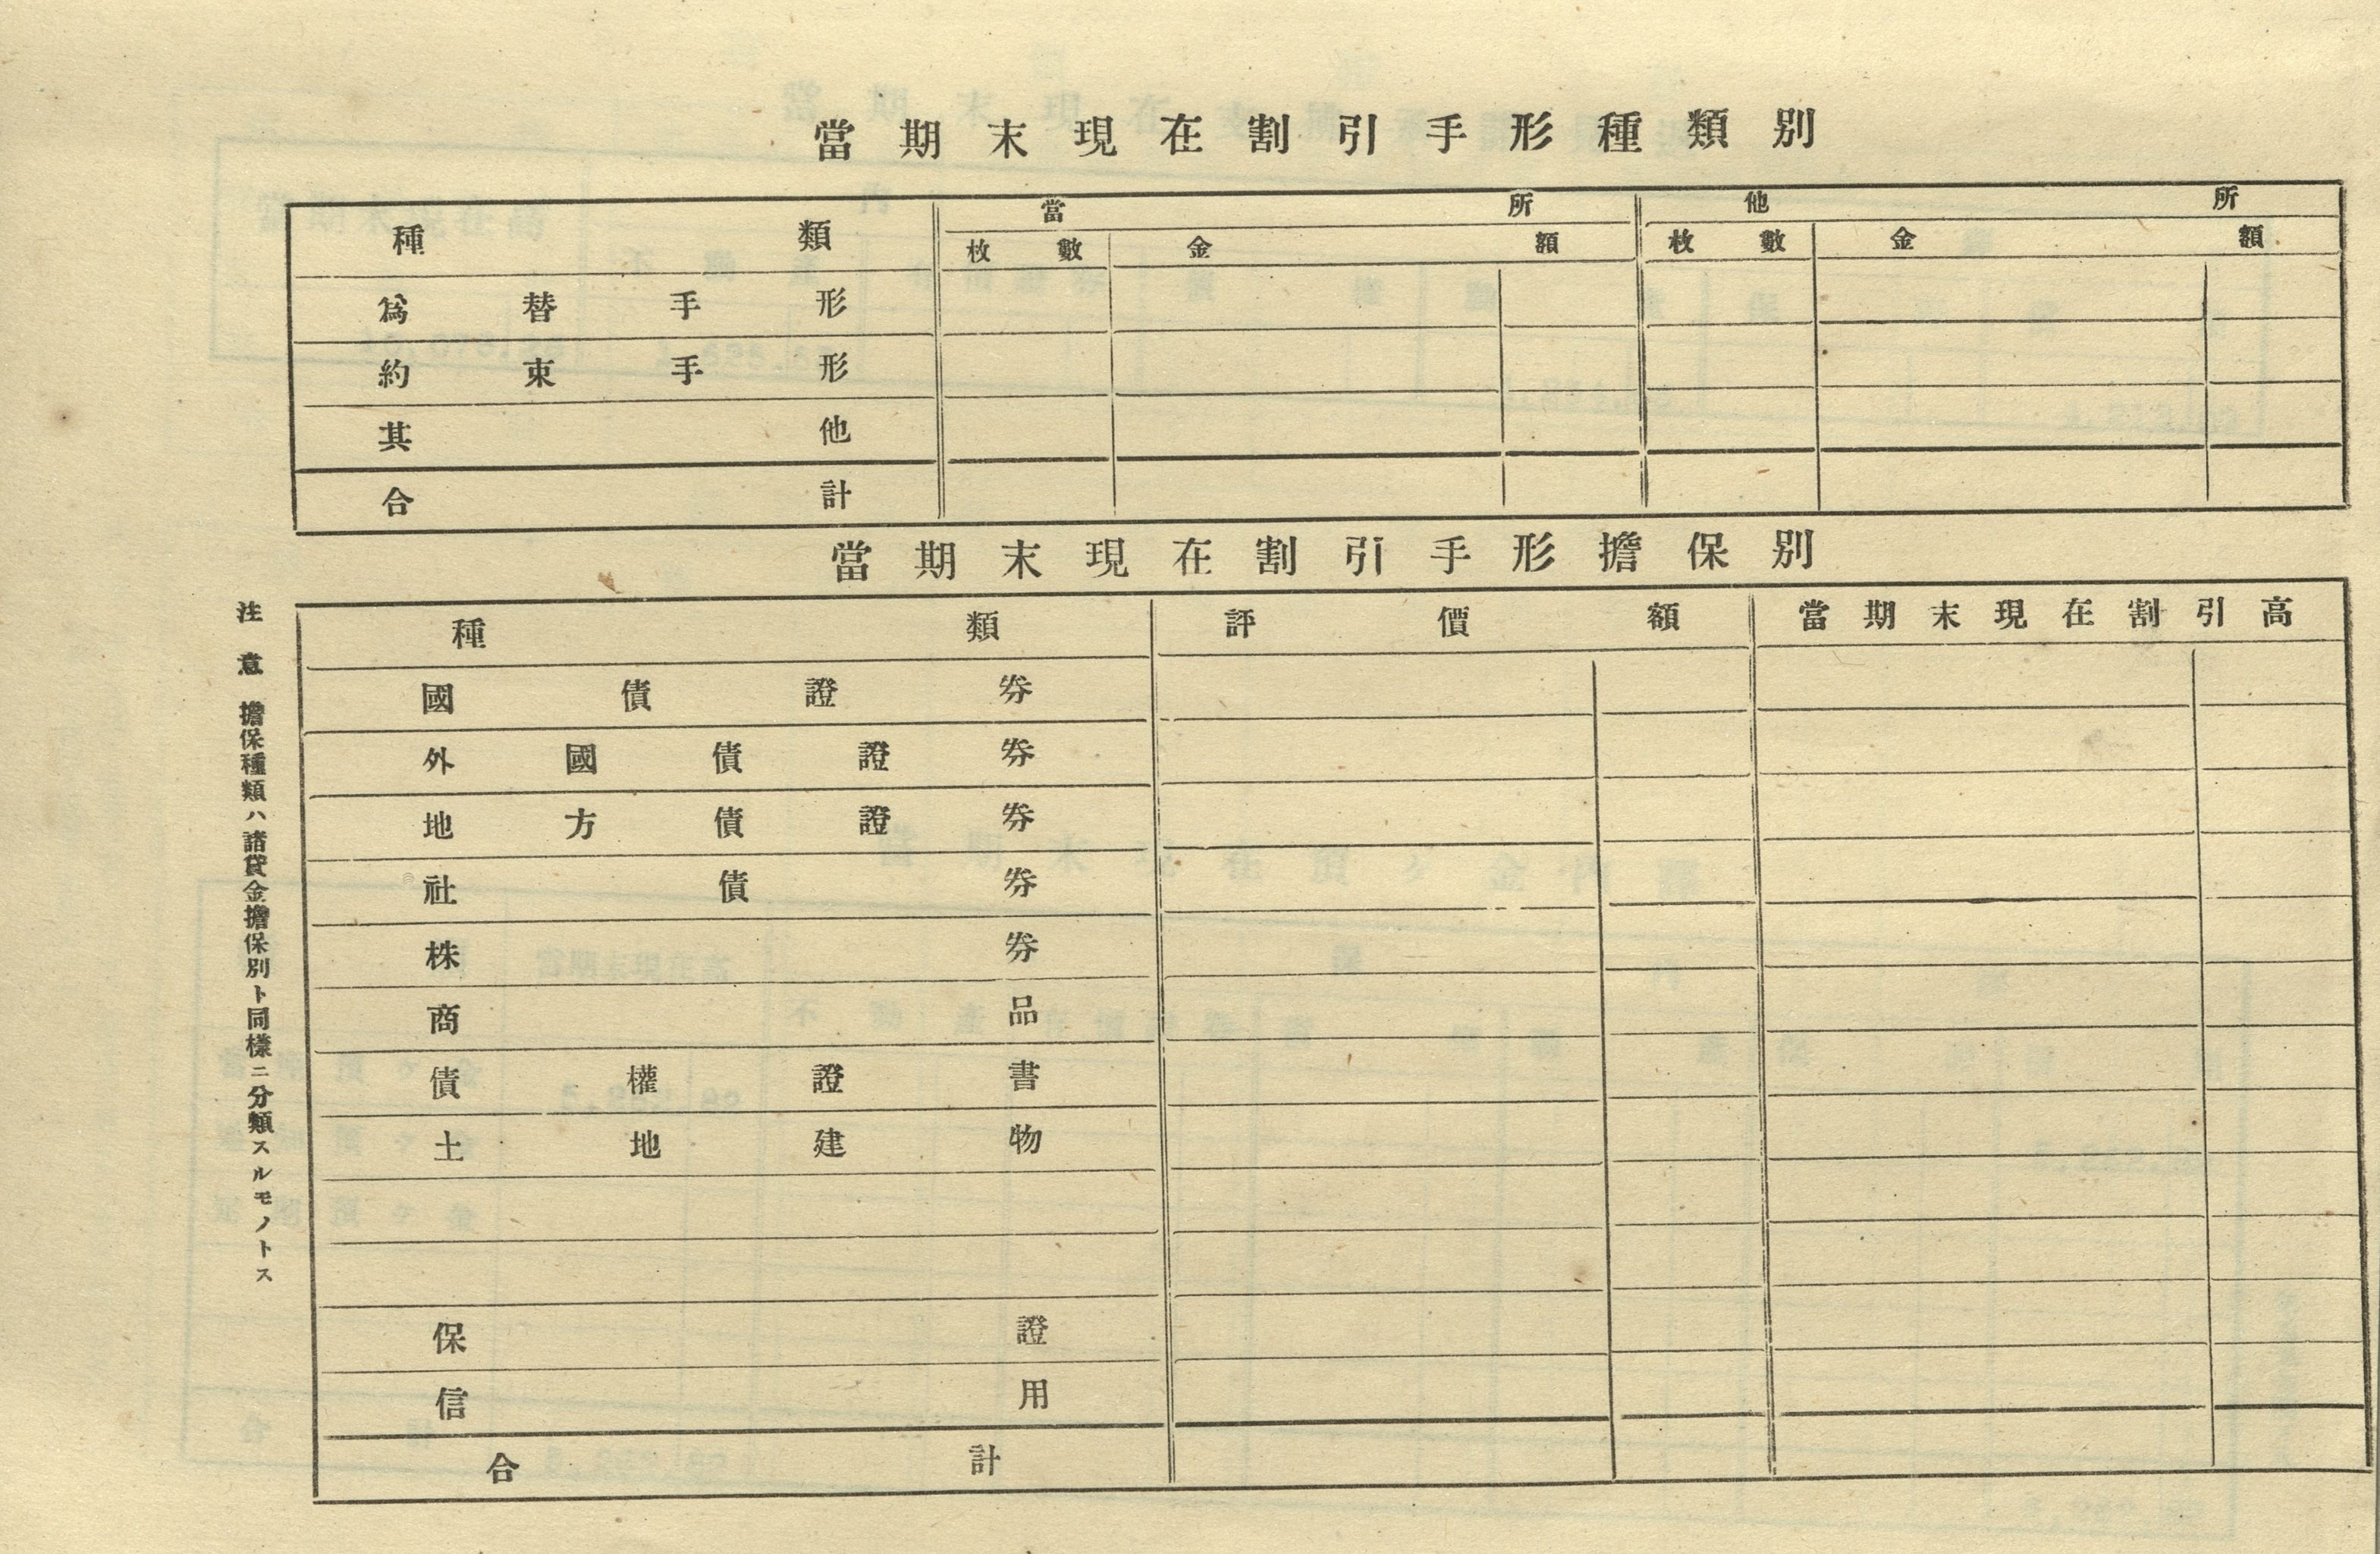 當期末現在割引手形種類別
種類 當所 他所
枚數 金額 枚數 金額
爲替手形
約束手形
其他
合計
當期末現在割引手形擔保別
種類 評價額 當期末現在割引高
國債證券
外國債證券
地方債證券
社債券
株券
商品
債權證書
土地建物
保證
信用
合計
注意 擔保種類ハ諸貸金擔保別ト同樣ニ分類スルモノトス